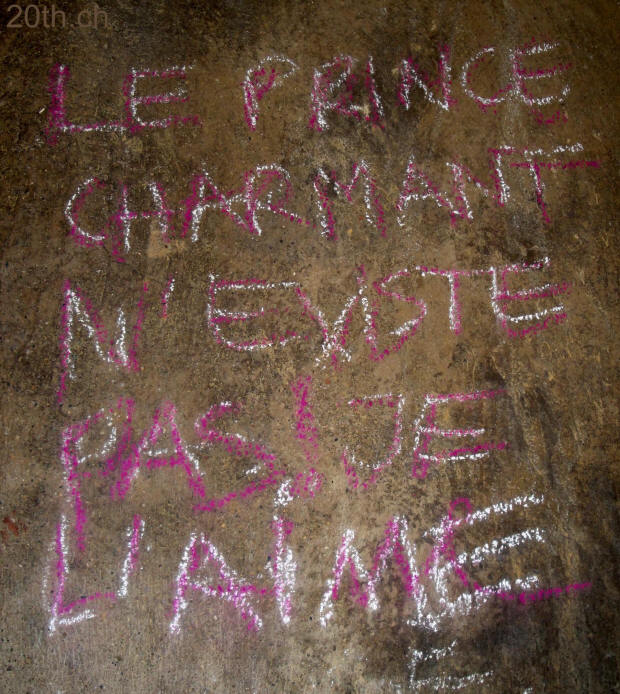 20th.ch
LE PRINCE
CHARMANT
N'EXISTE
PAS! JE
L'AIME
E